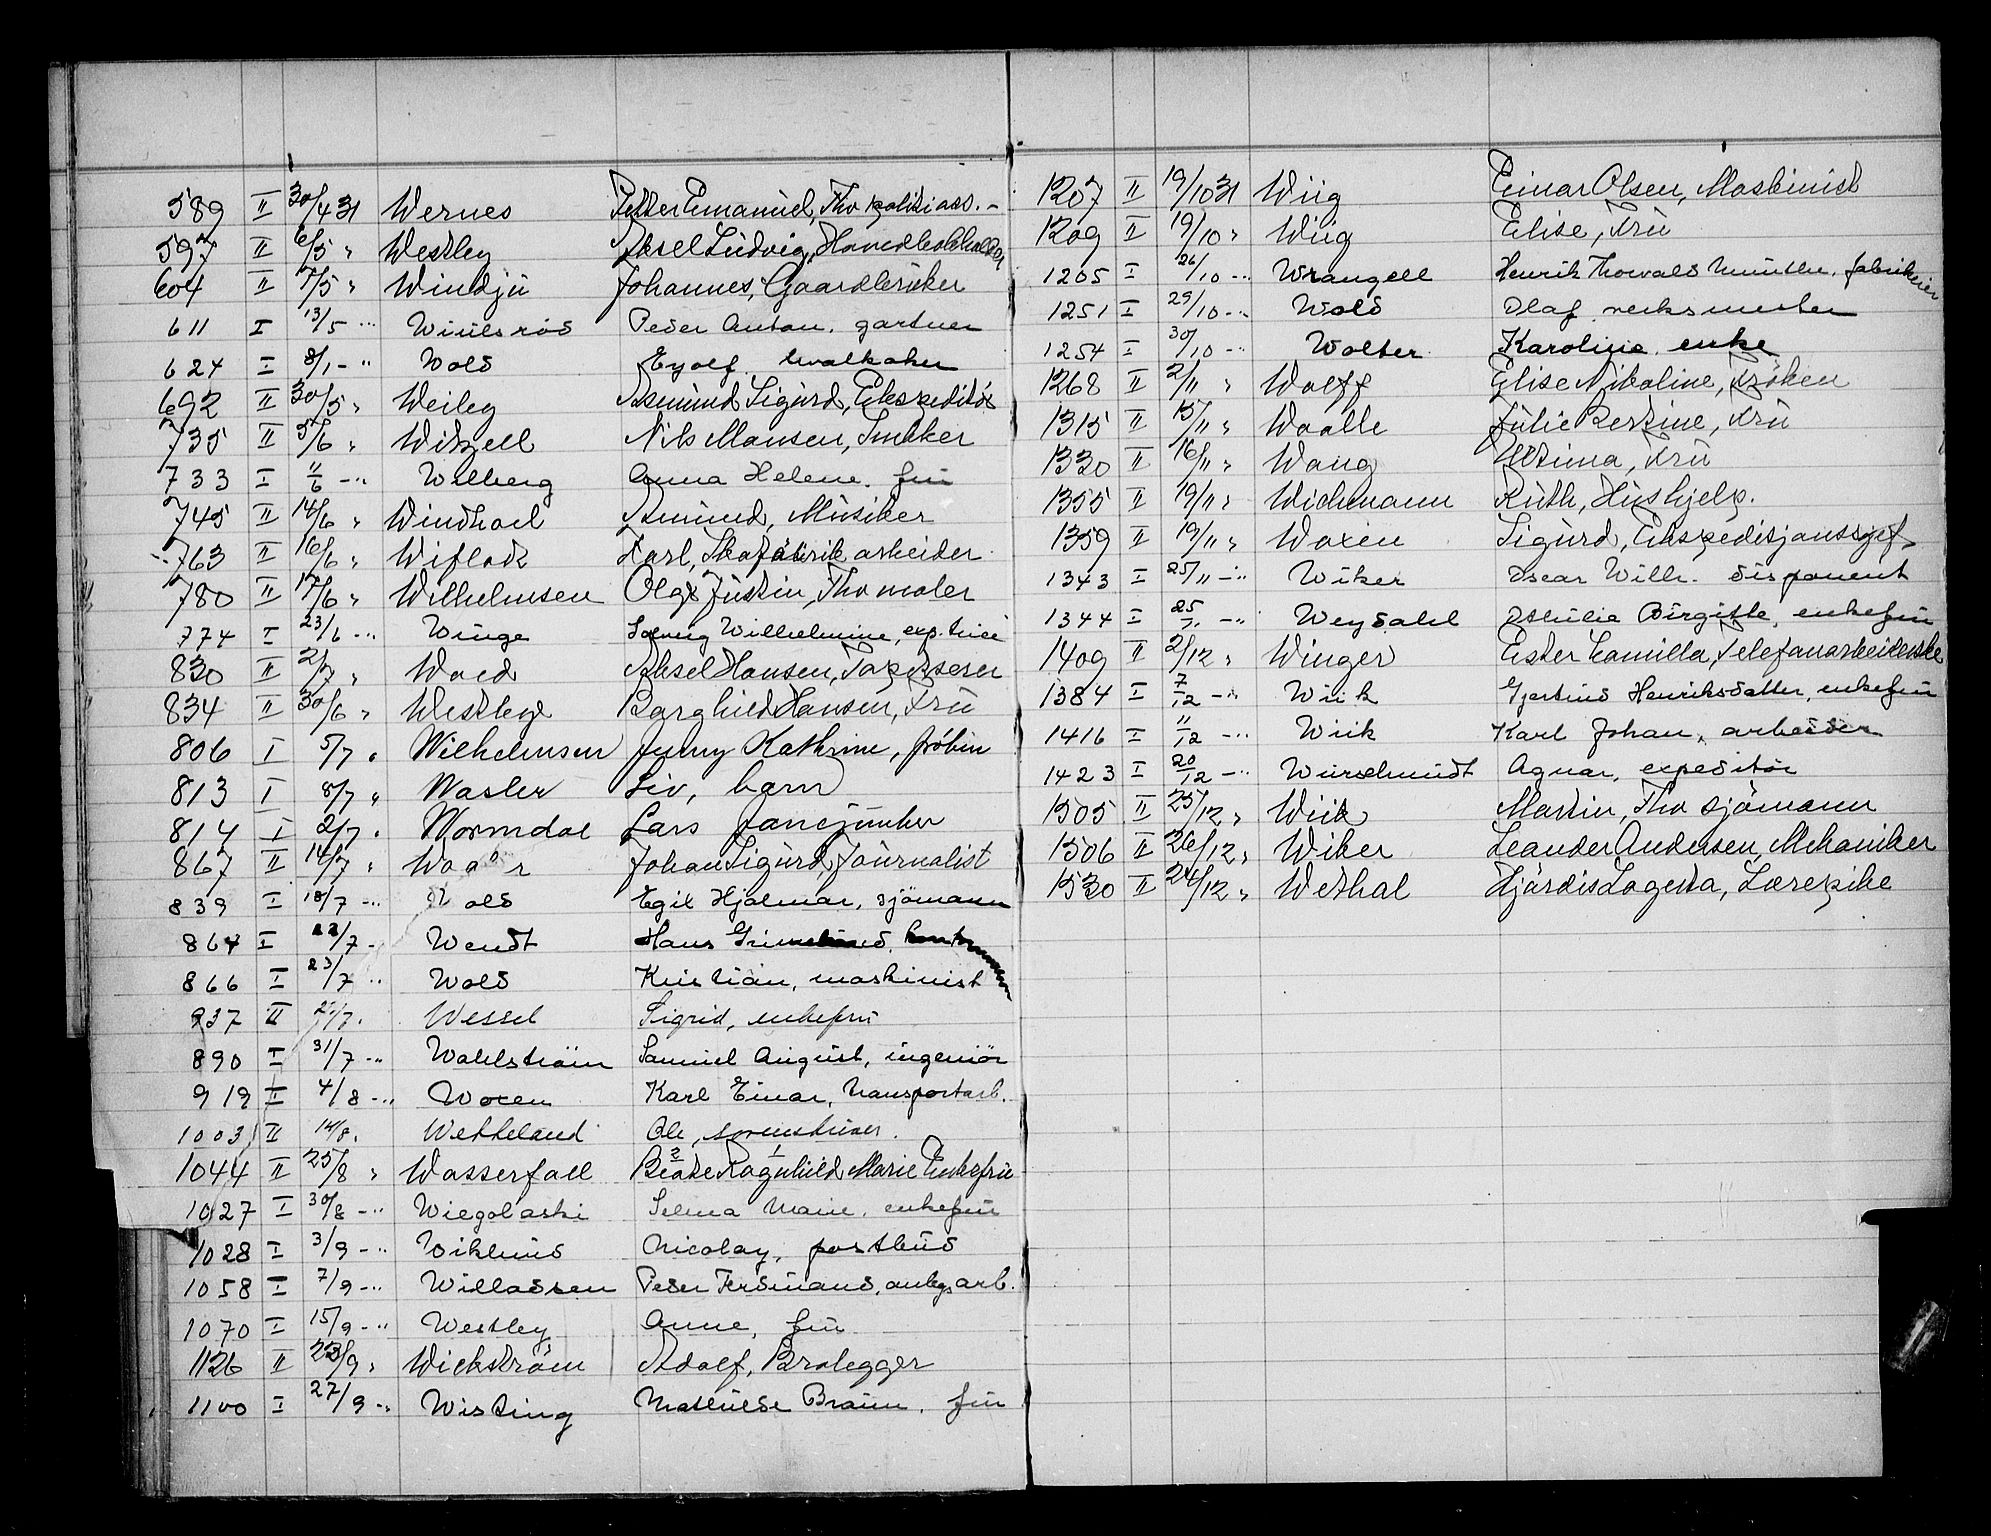 589 II 30/4 31 Wernes Petter Emanuel, Thv politiass. -
597 II 6/5 " Westley Aksel Ludvig, Hovedbokholder
604 II 7/5 " Windju Johannes, Gaardbruker
611 I 13/5 -" Peder Anton. gartner
624 I 8/1 -" Wold Eyolf
692 II 30/5 " Weiley Asmund Sigurd, Ekspeditör
735 II 5/6 " Witzell Nils Mansen, Snekker
733 I 11/6 -" Wilberg Anna Helene. fru
745 II 14/6 " Windhoel Asmund, Musiker
763 II 16/6 " Wiflodt Karl, Skofabrik arbeider
780 II 17/6 " Wilhelmsen Olga Justin, Thv maler
774 I 23/6 -" Winge Solveig Wilhelmine, exp.trice
830 II 2/7 " Wold Aksel Hansen, Tapetserer
834 II 30/6 " Westbye Borghild Hansen, Fru
806 I 5/7 " Wilhelmsen Jenny Kathrine, frøken
813 I 8/7 " Wasler Liv, barn
814 I 2/7 " Wormdal Lars
867 II 14/7 " Johan Sigurd, Journalist
839 I 18/7 -" Wold Egil Hjalmar, sjömann
864 I 22/7 - Wendt Hans
866 I 23/7 -" Wold Kristian, maskinist
937 II /7. Wessel Sigrid, enkefru
890 I 31/7 -" Wahlström Samuel August, ingeniör
919 I 4/8 -" Woxen Karl Einar, transportarb.
1003 II 14/8. Wetteland Ole,
1044 II 25/8 " Wasserfall Beate Ragnhild Marie Enkefru
1027 I 30/8 -" Wiegolaski Selma Marie. enkefru
1028 I 3/9 -" Wiklund Nicolay, postbud
1058 I 7/9 -" Willadsen Peder Ferdinand, anlegsarb.
1070 I 15/9 -" Westley Anne, fru
1126 II 23/9 " Wickström Adolf, Brolegger
1100 I 27/9 -" Wisting Mathilde Braun. fru
1207 II 19/10 31 Wiig Einar Olsen, Maskinist
1209 II 19/10 " Wiig Elise, Fru
1205 I 26/10 -" Wrangell Henrik Thorvald Munthe. fabrikeier
1251 I 29/10 -" Wold Olaf verksmester
1254 I 30/10 -" Wolter Karoline. enke
1268 II 2/11 " Wolff Elise Nikoline, Fröken
1315 II 15/11 " Waalle Julie Bertine, Fru
1330 II 16/11 " Wang Fru
1355 II 19/11 " Wichmann Ruth, Hushjelp.
1359 II 19/11 " Woxen Sigurd, Ekspedisjonssjef
1343 I 25/11 -" Wiker Oscar Wilh. disponent
1344 I 25/11 -" Weydahl Othilie Birgitte, enkefru
1409 II 2/12 " Winger Ester Camilla, Telefonarbeiderske
1384 I 7/12 -" Wiik Gjertrud Henriksdatter, enkefru
1416 I 11/12 -" Wiik Karl Johan, arbeider
1423 I 20/12 -" Würschmidt Agnar, expeditör
1505 II 25/12 " Wiik Martin, Thv sjömann
1506 II 26/12 " Wiker Leander Andersen, Mekaniker
1530 II 24/12 " Wethal Hjördis Lagerta, Lærepike